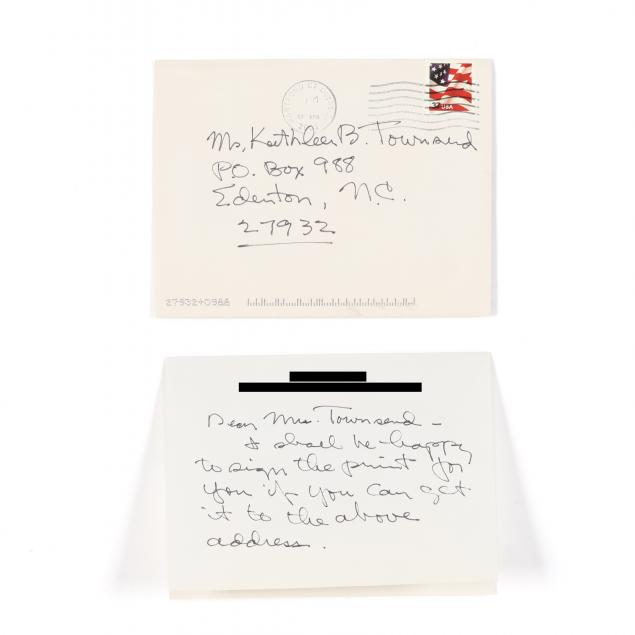 USA
Ms. Kathleen B. Townsend
P.O. Box 988
Edenton, N.C.
27932
27932+0988
Dear Ms. Townsend -
I shall be happy
to sign the print for
you if you can get
it to the above
address.